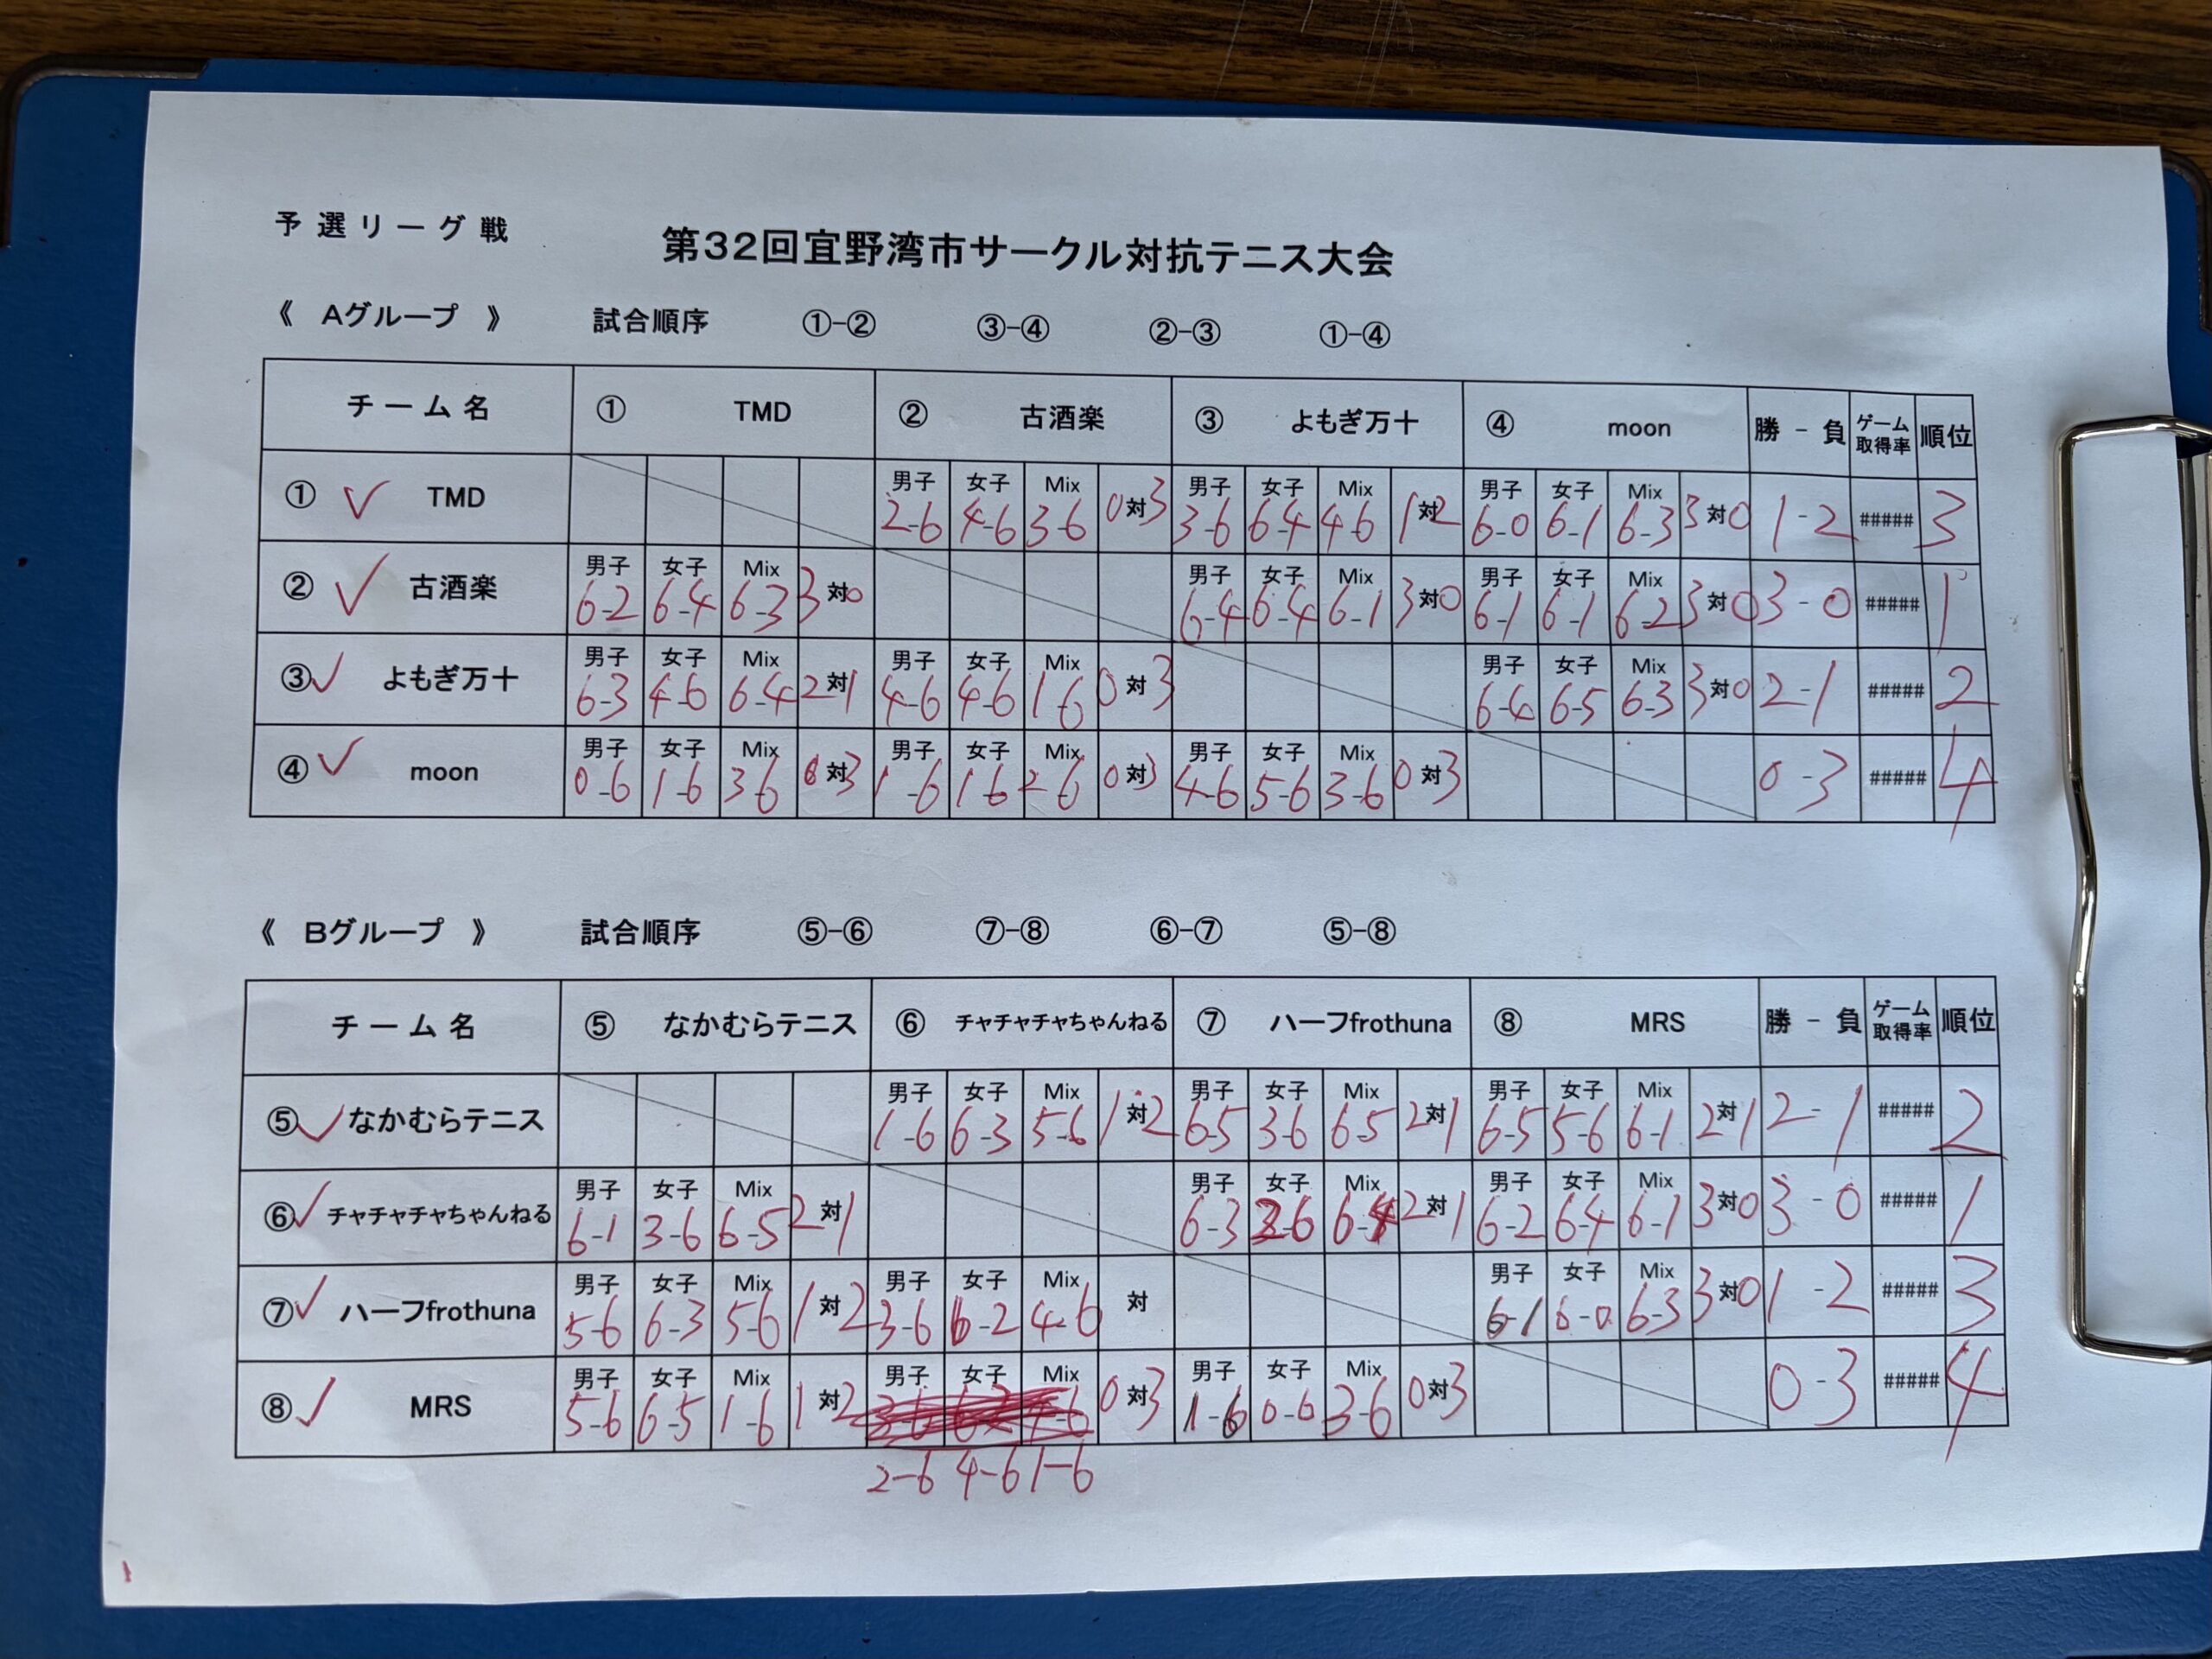 予選リーグ戦
第32回宜野湾市サークル対抗テニス大会
《 Aグループ 》 試合順序 ①-② ③-④ ②-③ ①-④
チーム名 ① TMD ② 古酒楽 ③ よもぎ万十 ④ moon 勝 - 負 ゲーム取得率 順位
① ✓ TMD 男子 2-6 女子 4-6 Mix 3-6 0対3 男子 3-6 女子 6-4 Mix 4-6 1対2 男子 6-0 女子 6-1 Mix 6-3 3対0 1-2 ##### 3
② ✓ 古酒楽 男子 6-2 女子 6-4 Mix 6-3 3対0 男子 6-4 女子 6-4 Mix 6-1 3対0 男子 6-1 女子 6-1 Mix 6-2 3対0 3-0 ##### 1
③ ✓ よもぎ万十 男子 6-3 女子 4-6 Mix 6-4 2対1 男子 4-6 女子 4-6 Mix 1-6 0対3 男子 6-4 女子 6-5 Mix 6-3 3対0 2-1 ##### 2
④ ✓ moon 男子 0-6 女子 1-6 Mix 3-6 0対3 男子 1-6 女子 1-6 Mix 2-6 0対3 男子 4-6 女子 5-6 Mix 3-6 0対3 0-3 ##### 4
《 Bグループ 》 試合順序 ⑤-⑥ ⑦-⑧ ⑥-⑦ ⑤-⑧
チーム名 ⑤ なかむらテニス ⑥ チャチャチャちゃんねる ⑦ ハーフfrothuna ⑧ MRS 勝 - 負 ゲーム取得率 順位
⑤ ✓ なかむらテニス 男子 1-6 女子 6-3 Mix 5-6 1対2 男子 6-5 女子 3-6 Mix 6-5 2対1 男子 6-5 女子 5-6 Mix 6-1 2対1 2-1 ##### 2
⑥ ✓ チャチャチャちゃんねる 男子 6-1 女子 3-6 Mix 6-5 2対1 男子 6-3 女子 2-6 Mix 6-4 2対1 男子 6-2 女子 6-4 Mix 6-1 3対0 3-0 ##### 1
⑦ ✓ ハーフfrothuna 男子 5-6 女子 6-3 Mix 5-6 1対2 男子 3-6 女子 6-2 Mix 4-6 対 男子 6-1 女子 6-0 Mix 6-3 3対0 1-2 ##### 3
⑧ ✓ MRS 男子 5-6 女子 6-5 Mix 1-6 1対2 男子 女子 Mix 0対3 男子 1-6 女子 0-6 Mix 3-6 0対3 0-3 ##### 4
2-6 4-6 1-6